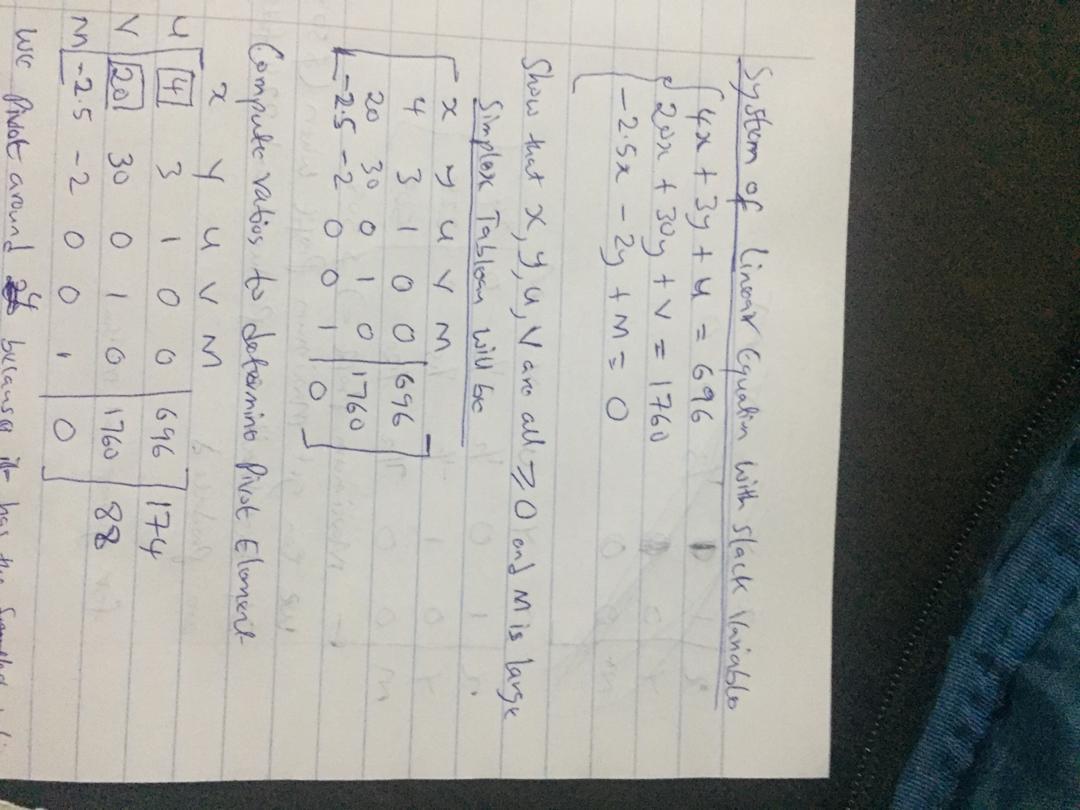 System of linear Equation with Slack Variable
4x + 3y + u = 696
20x + 30y + v = 1760
-2.5x - 2y + M = 0
Show that x, y, u, v are all ≥ 0 and M is large
Simplex Tableau will be
x y u v M
4 3 1 0 0 696
20 30 0 1 0 1760
-2.5 -2 0 0 1 0
Compute ratios to determine Pivot Element
x y u v M
u 4 3 1 0 0 696 174
v 20 30 0 1 0 1760 88
M -2.5 -2 0 0 1 0
We Pivot around because it has the